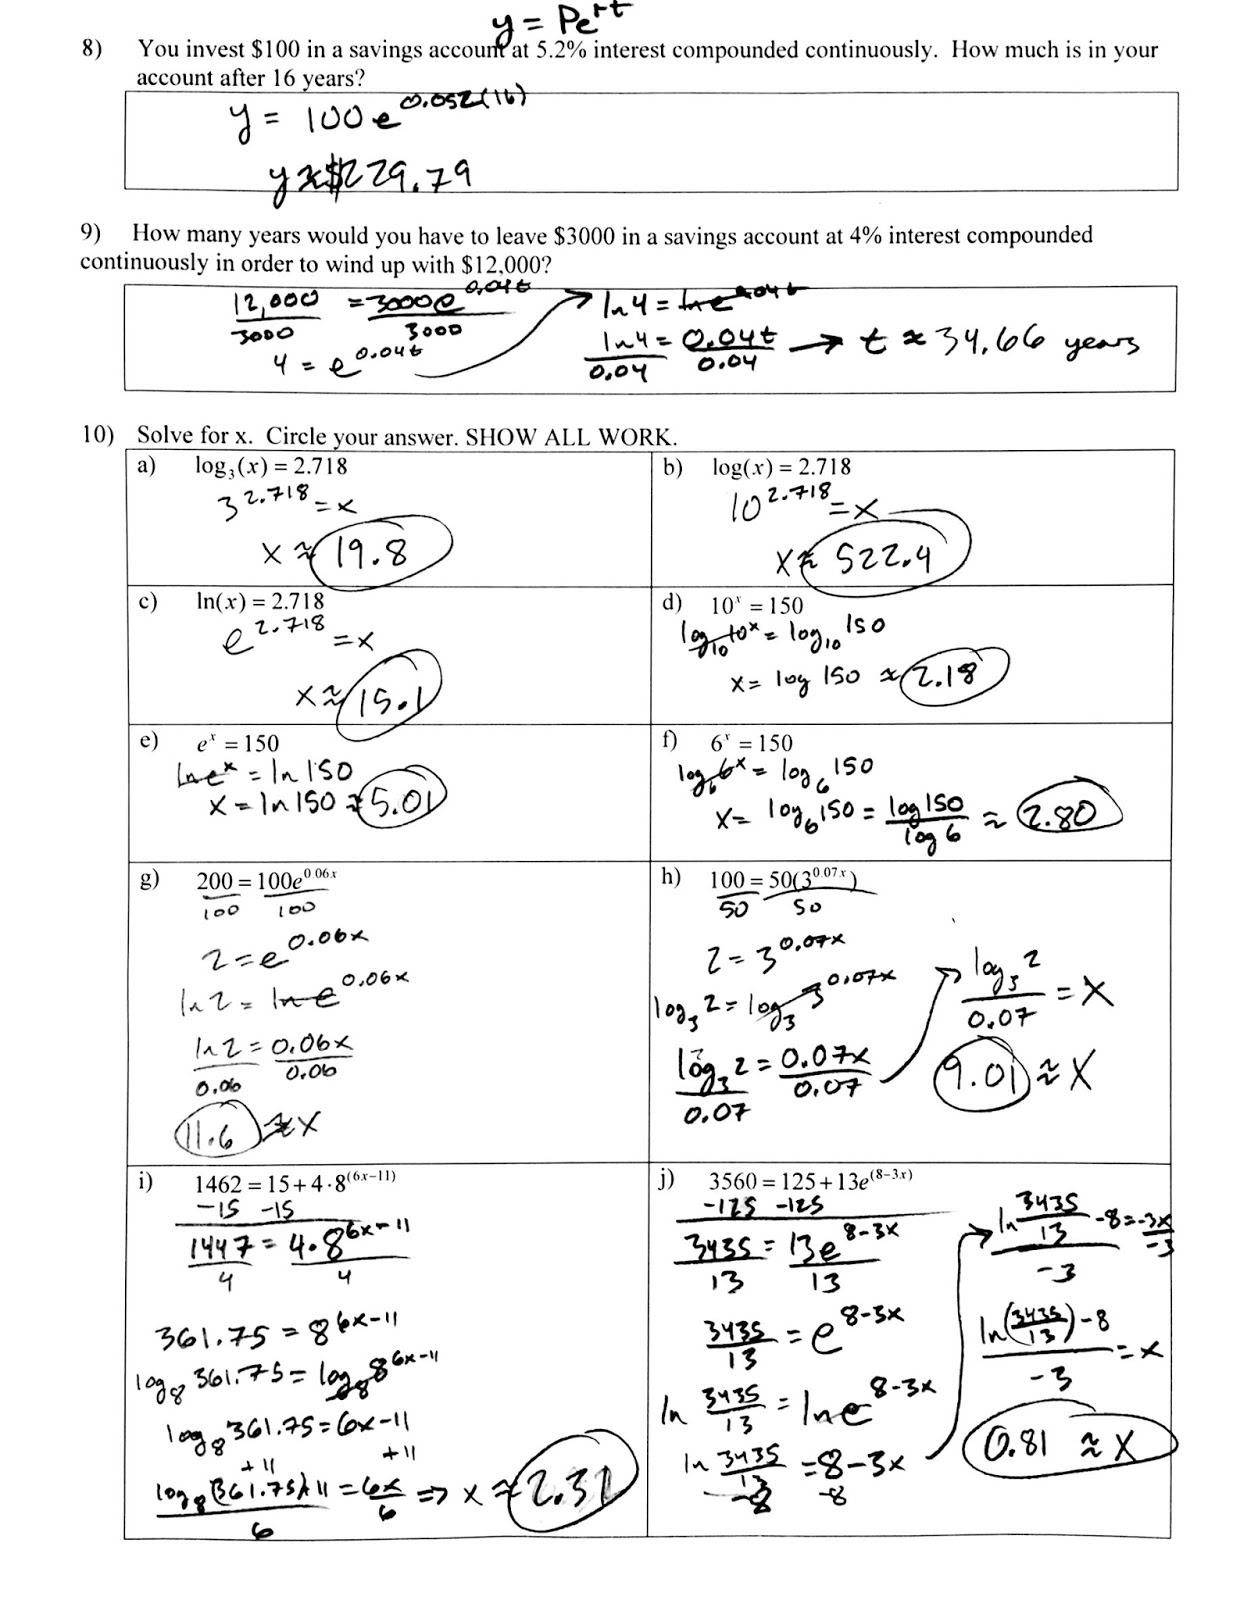 y = Pe^rt
8) You invest $100 in a savings account at 5.2% interest compounded continuously. How much is in your
account after 16 years?
y = 100e^0.052(16)
y ≈ $229.79
9) How many years would you have to leave $3000 in a savings account at 4% interest compounded
continuously in order to wind up with $12,000?
12,000/3000 = 3000e^0.04t/3000
4 = e^0.04t
ln 4 = ln e^0.04t
ln 4/0.04 = 0.04t/0.04 → t ≈ 34.66 years
10) Solve for x. Circle your answer. SHOW ALL WORK.
a) log₃(x) = 2.718
3^2.718 = x
x ≈ 19.8
b) log(x) = 2.718
10^2.718 = x
x ≈ 522.4
c) ln(x) = 2.718
e^2.718 = x
x ≈ 15.1
d) 10^x = 150
log₁₀10^x = log₁₀150
x = log 150 ≈ 2.18
e) e^x = 150
ln e^x = ln 150
x = ln 150 ≈ 5.01
f) 6^x = 150
log₆6^x = log₆150
x = log₆150 = log 150/log 6 ≈ 2.80
g) 200 = 100e^0.06x
100 100
2 = e^0.06x
ln 2 = ln e^0.06x
ln 2/0.06 = 0.06x/0.06
11.6 ≈ x
h) 100 = 50(3^0.07x)
50 50
2 = 3^0.07x
log₃2 = log₃3^0.07x
log₃2/0.07 = 0.07x/0.07
log₃2/0.07 = x
9.01 ≈ x
i) 1462 = 15 + 4·8^(6x−11)
-15 -15
1447/4 = 4·8^6x-11/4
361.75 = 8^6x-11
log₈361.75 = log₈8^6x-11
log₈361.75 = 6x-11
+11 +11
log₈(361.75)+11/6 = 6x/6 ⇒ x ≈ 2.31
j) 3560 = 125 + 13e^(8−3x)
-125 -125
3435/13 = 13e^8-3x/13
3435/13 = e^8-3x
ln 3435/13 = ln e^8-3x
ln 3435/13 = 8-3x
-8 -8
ln 3435/13 -8/-3 = -3x/-3
ln(3435/13)-8/-3 = x
0.81 ≈ x